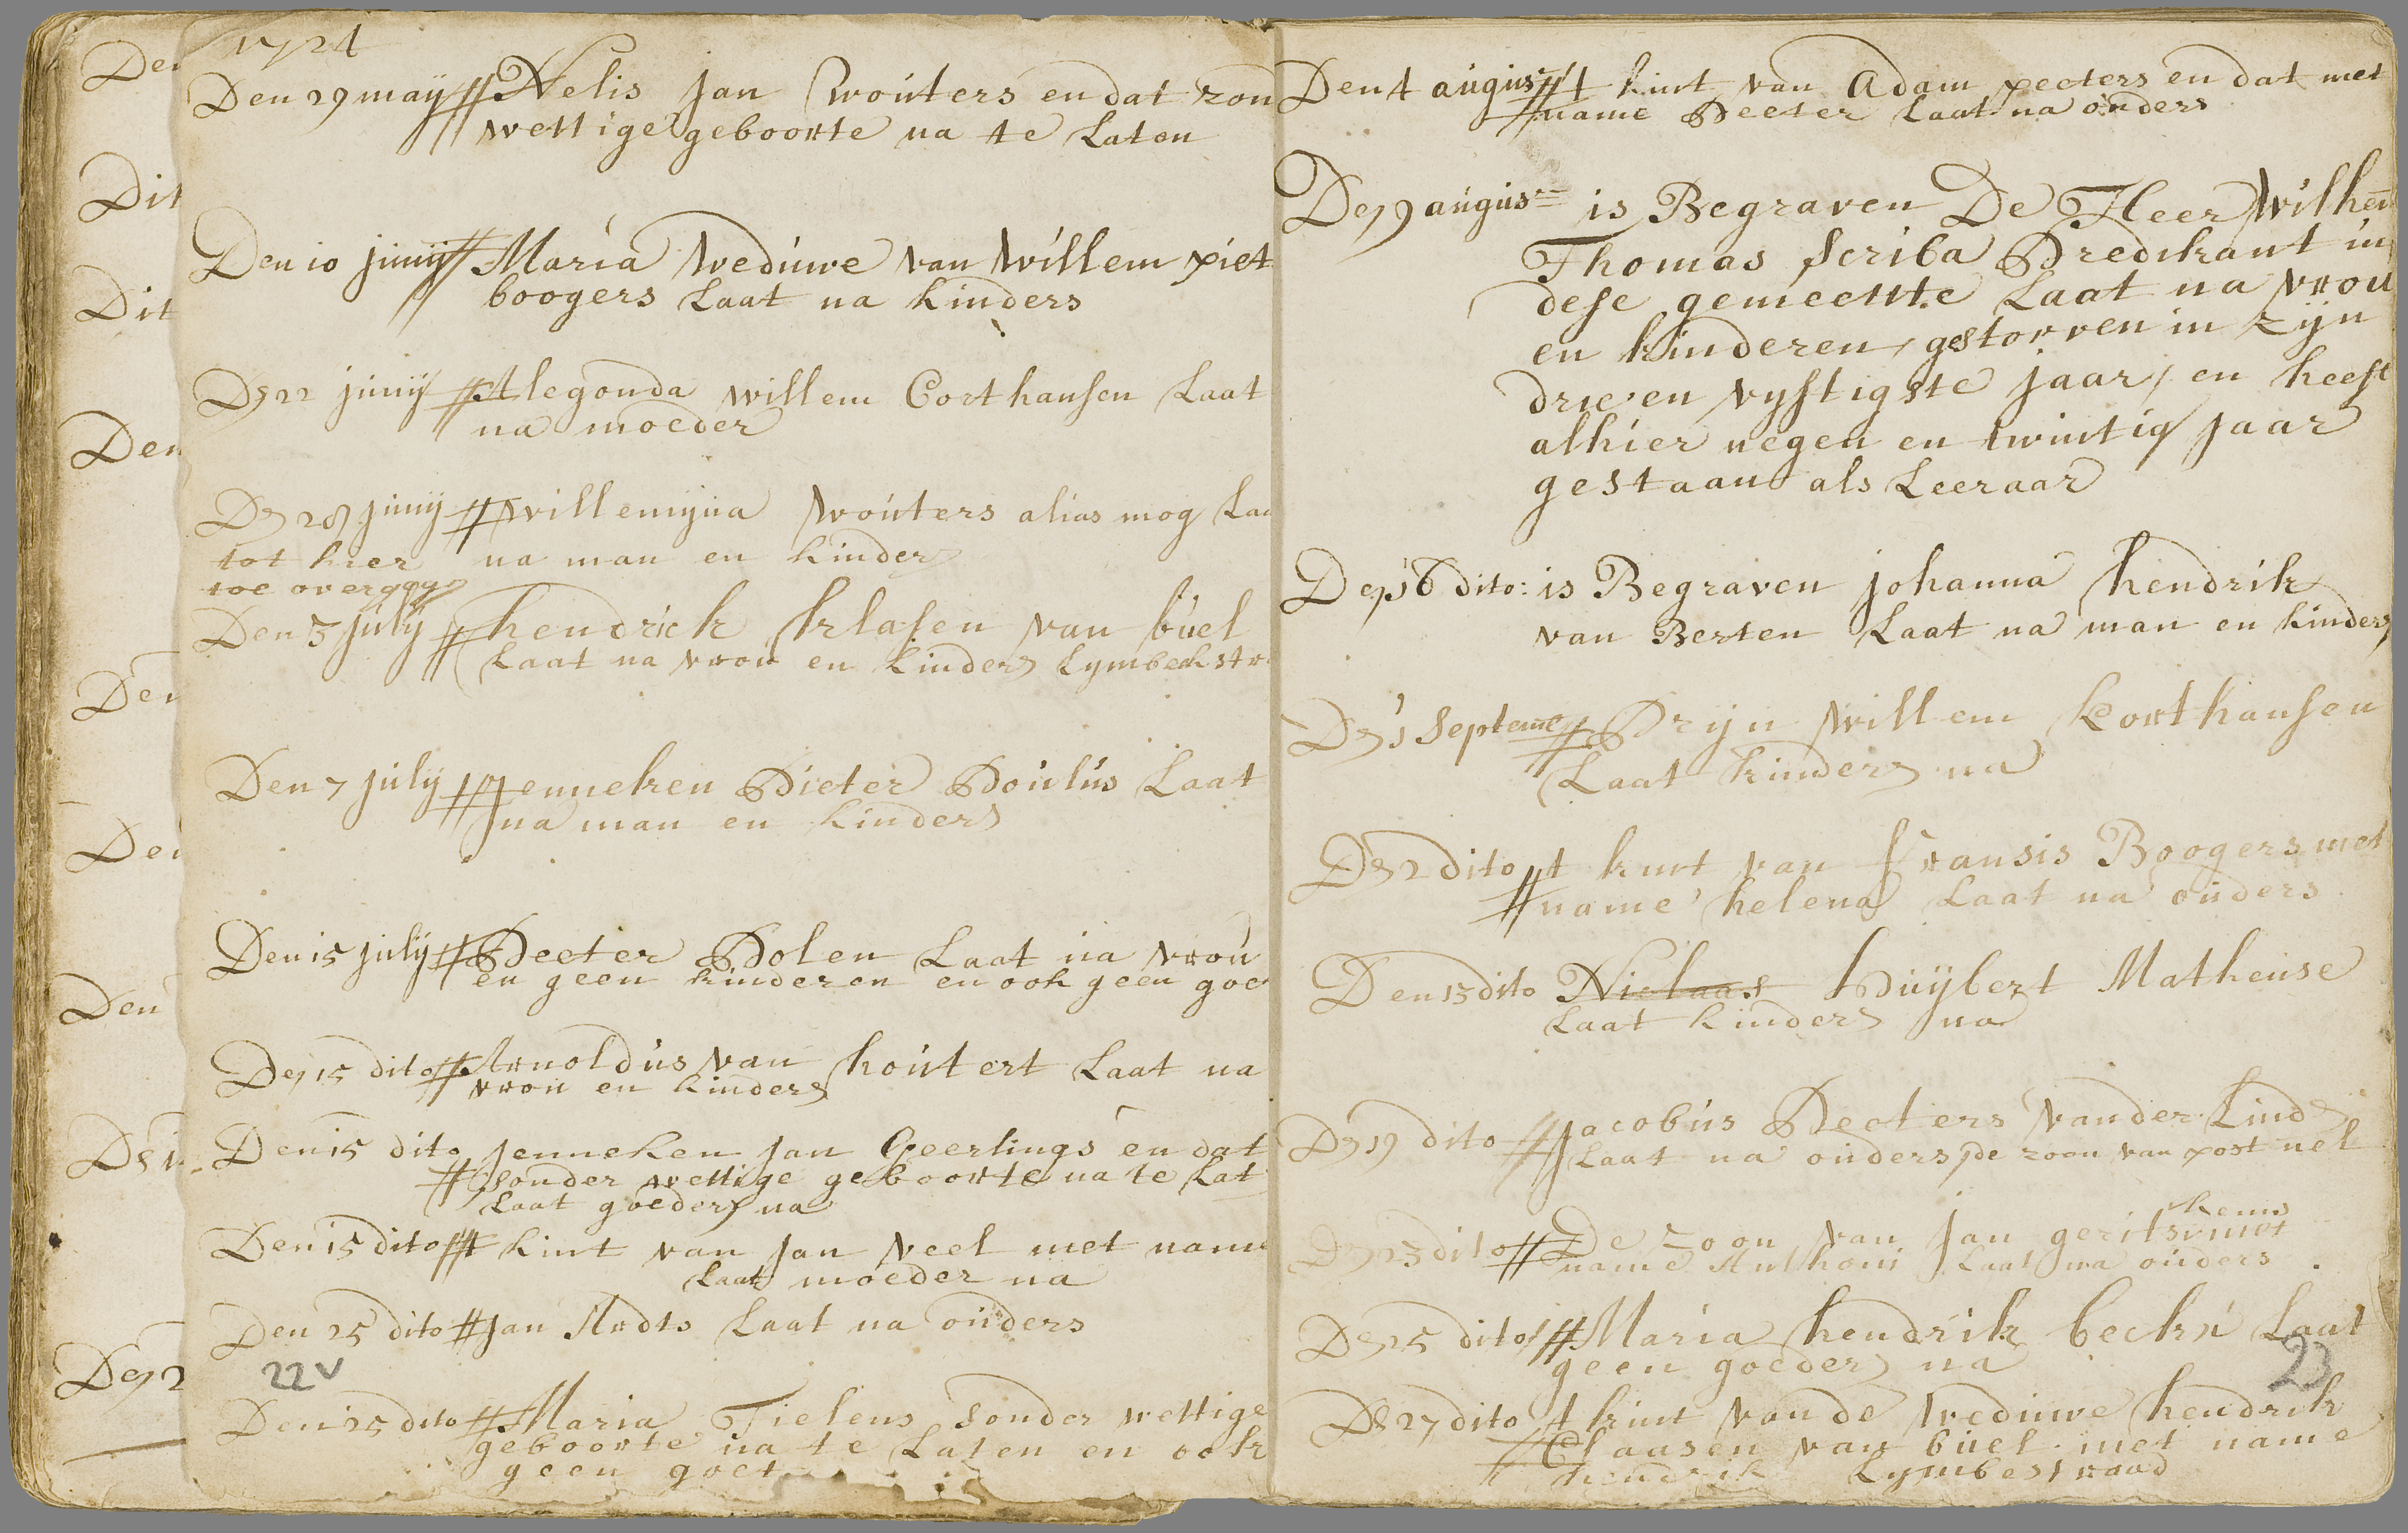 1724
Den 29 maij Nelis Jan Wouters en dat zon
wettige geboorte na te Laten
Den 10 junij Maria Weduwe van Willem piet
boogers Laat na kinders
Den 22 junij Alegonda willem Corthansen Laat
na moeder
Den 28 junij willemijna Wouters alias mog Laa
tot hier na man en kinders
toe overgeg
Den 5 julij hendrick klasen van buel
Laat na vrou en kinders Lymbeckstr
Den 7 julij Jenneken Pieter Poulus Laat
na man en kinders
Den 15 julij Peeter Polen Laat na vrou
en geen kinderen en ook geen goe
Den 15 dito Arnoldus van houtert Laat na
vrou en kinders
Den 15 dito Jenneken Jan Geerlings en dat
sonder wettige geboorte na te Lat
Laat goeders na
Den 15 dito t kint van Jan Veel met name
Laat moeder na
Den 25 dito Jan Ardts Laat na ouders
22v
Den 25 dito Maria Tielens sonder wettige
geboorte na te Laten en ook
geen goet
Den 4 augus t kint van Adam peeters en dat met
name Peeter Laat na ouders
Den 9 augus is Begraven De Heer Wilhem
Thomas Scriba Predikant in
dese gemeente Laat na vrou
en kinderen, gestorven in zijn
drie en vyftigste jaar, en heeft
alhier negen en twintig jaar
gestaan als Leeraar
Den 16 dito: is Begraven johanna hendrik
van Berten Laat na man en kinders
Den 1 Septeme Dryn Willem Corthansen
Laat kinders na
Den 2 dito t kint van fransis Boogers met
name helena Laat na ouders
Den 15 dito Niclaas Huijbert Matheuse
Laat kinders na
Den 19 dito Jacobus Peeters vander Lind
Laat na ouders, de zoon van post nel
kens
Den 23 dito De zoon van Jan gerits met
name Anthoni Laat na ouders
Den 25 dito Maria hendrik beckx Laat
geen goeders na
23
Den 27 dito t kint van de Weduwe hendrik
Claasen van buel met name
hendrik Lymbestraad
Den
Dit
Dit
Den
Den
Den
Den
Den
Den 2